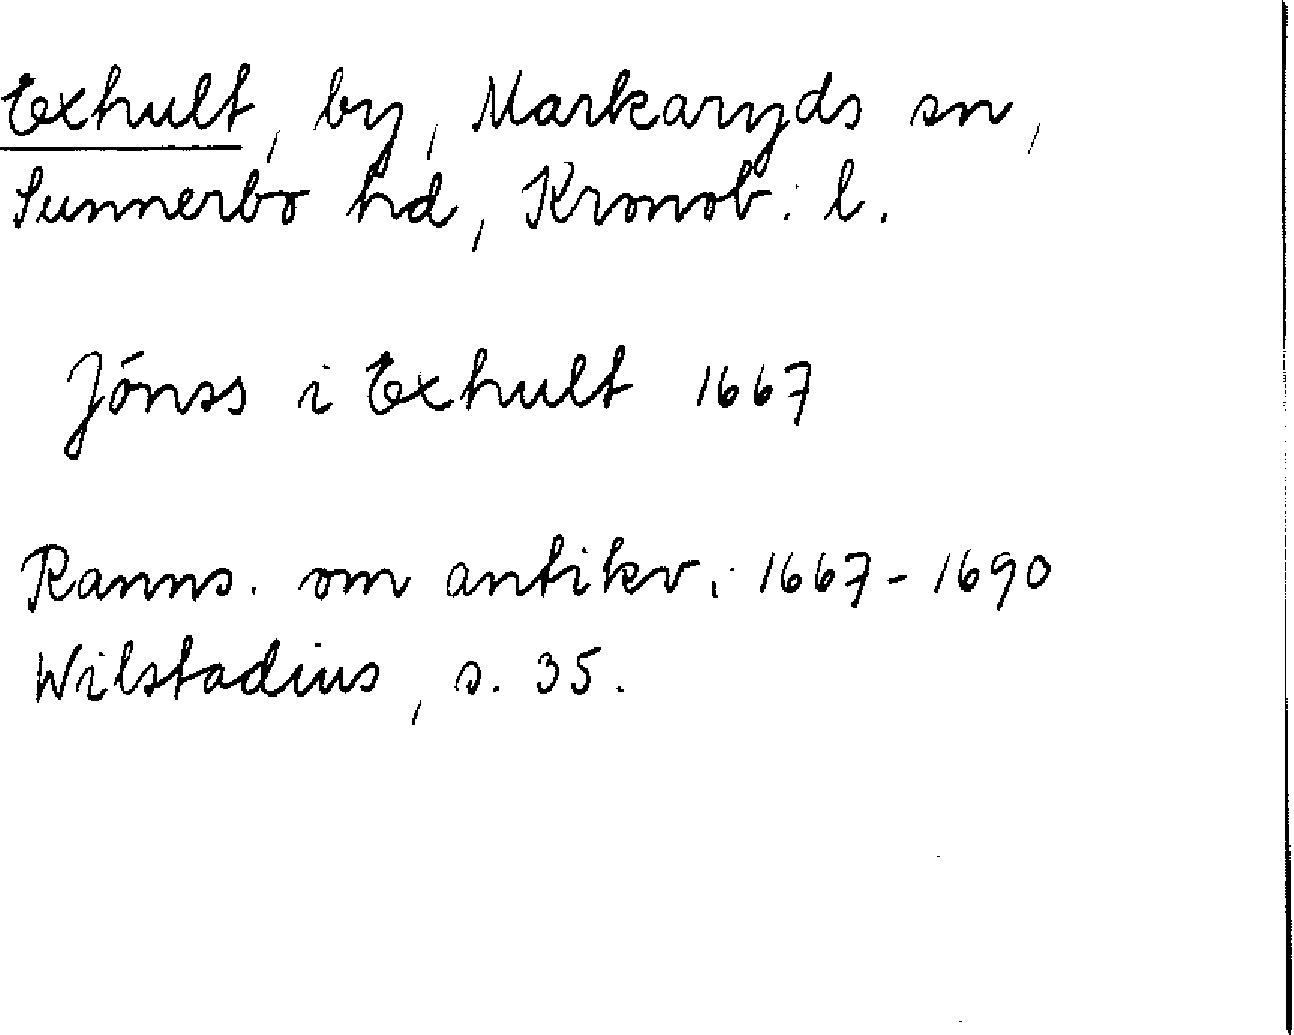 Exhult, by, Markaryds sn,
Sunnerbo hd, Kronob. l.
Jónss i Exhult 1667
Ranns. om antikv. 1667-1690
Wilstadius, s. 35.